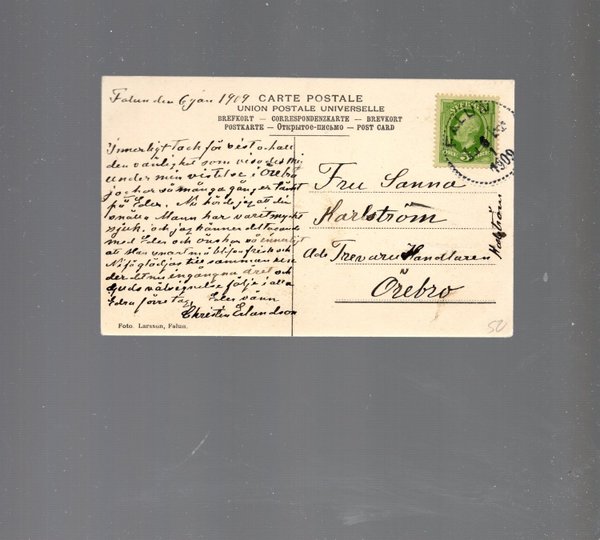 Falun den 6 jan 1909
CARTE POSTALE
UNION POSTALE UNIVERSELLE
BREFKORT — CORRESPONDENZKARTE — BREVKORT
POSTKARTE — Открытое-письмо — POST CARD
Innerligt Tack för
den vänlighet som
under min vistelse i Örebro
jag har så många gånger tänkt
på Eder. Nu hörde jag att din
snälla Mann har varit mycket
sjuk, och jag känner deltagande
med Eder och önskar
att Han snart måtte bli frisk och
Ni få glädjas tillsamman
och
Guds välsignelse följe i alla
Edra företag. Eder vänn
Christin Erlandson
Fru Sanna
Karlström
Adr Trävaru Handlaren
Karlström
Örebro
FALUN
1909
Foto. Larsson, Falun.
50